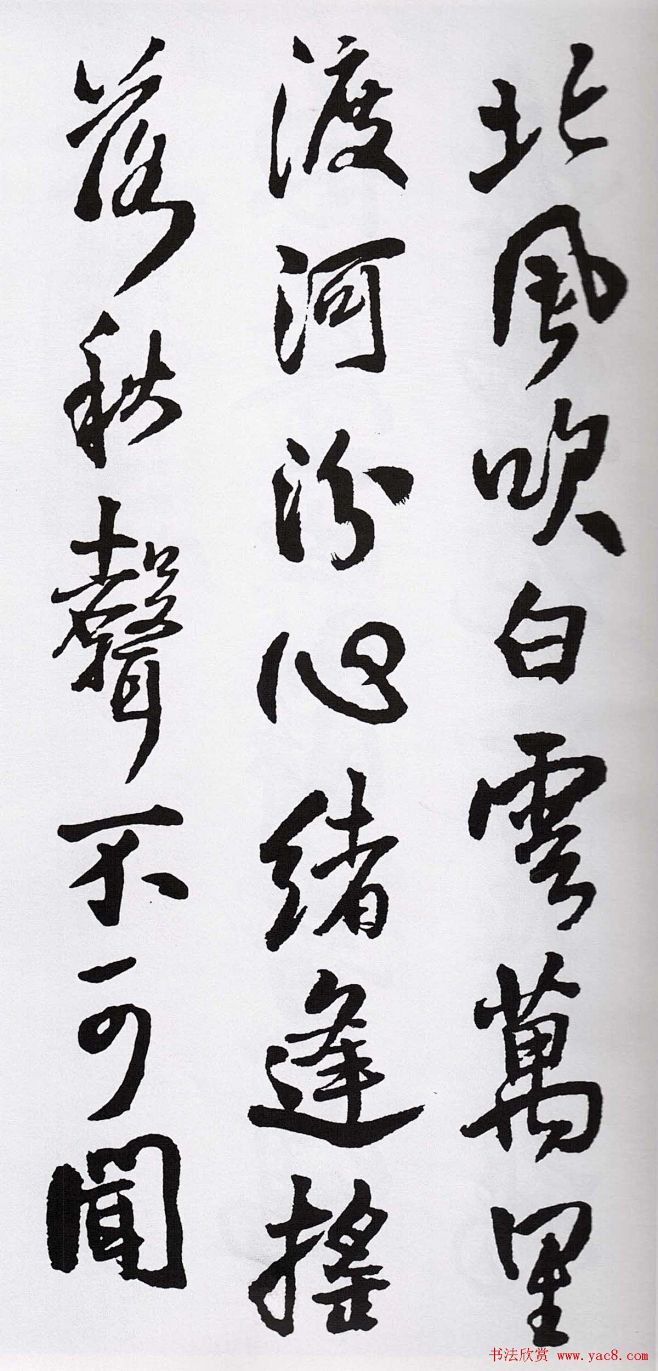 北風吹白雲萬里
渡河汾心緒逢搖
落秋聲不可聞
书法欣赏 www.yac8.com